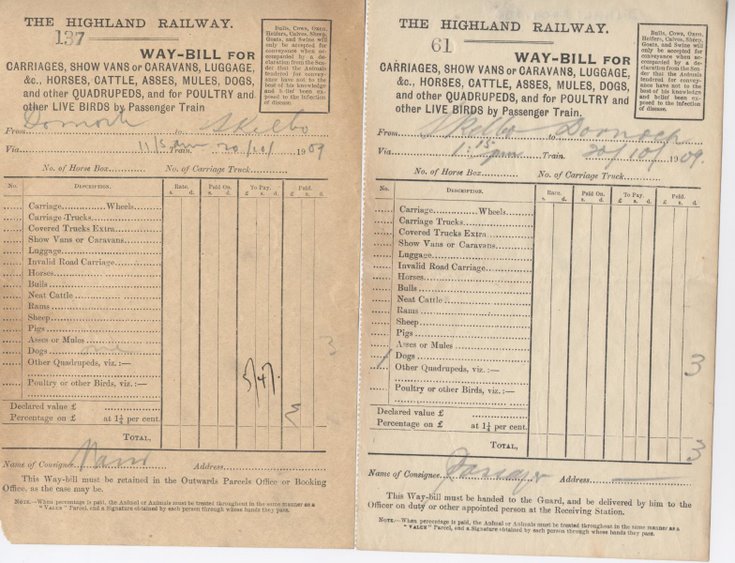 THE HIGHLAND RAILWAY.
137
WAY-BILL FOR
CARRIAGES, SHOW VANS or CARAVANS, LUGGAGE,
&c., HORSES, CATTLE, ASSES, MULES, DOGS,
and other QUADRUPEDS, and for POULTRY and
other LIVE BIRDS by Passenger Train
Bulls, Cows, Oxen,
Heifers, Calves, Sheep,
Goats, and Swine will
only be accepted for
conveyance when ac-
companied by a de-
claration from the Sen-
der that the Animals
tendered for convey-
ance have not to the
best of his knowledge
and belief been ex-
posed to the infection
of disease.
From Dornoch to Skelbo
Via 11/5 am Train. 20/10/ 1909
No. of Horse Box No. of Carriage Truck
No. DESCRIPTION. Rate. Paid On. To Pay. Paid.
s. d. s. d. £ s. d. £ s. d.
Carriage Wheels
Carriage Trucks
Covered Trucks Extra
Show Vans or Caravans
Luggage
Invalid Road Carriage
Horses
Bulls
Neat Cattle
Rams
Sheep
Pigs
Asses or Mules
Dogs one 3
Other Quadrupeds, viz.:—
Poultry or other Birds, viz.:—
Declared value £
Percentage on £ at 1¼ per cent. 3
TOTAL,
Name of Consignee Address
This Way-bill must be retained in the Outwards Parcels Office or Booking
Office, as the case may be.
NOTE.—When percentage is paid, the Animal or Animals must be treated throughout in the same manner as a
"VALUE" Parcel, and a Signature obtained by each person through whose hands they pass.
THE HIGHLAND RAILWAY.
61
WAY-BILL FOR
CARRIAGES, SHOW VANS or CARAVANS, LUGGAGE,
&c., HORSES, CATTLE, ASSES, MULES, DOGS,
and other QUADRUPEDS, and for POULTRY and
other LIVE BIRDS by Passenger Train.
Bulls, Cows, Oxen,
Heifers, Calves, Sheep,
Goats, and Swine will
only be accepted for
conveyance when ac-
companied by a de-
claration from the Sen-
der that the Animals
tendered for convey-
ance have not to the
best of his knowledge
and belief been ex-
posed to the infection
of disease.
From Skelbo to Dornoch
Via 1:15 pm Train. 20/10/ 1909.
No. of Horse Box No. of Carriage Truck
No. DESCRIPTION. Rate. Paid On. To Pay. Paid.
s. d. s. d. £ s. d. £ s. d.
Carriage Wheels
Carriage Trucks
Covered Trucks Extra
Show Vans or Caravans
Luggage
Invalid Road Carriage
Horses
Bulls
Neat Cattle
Rams
Sheep
Pigs
Asses or Mules
1 Dogs 3
Other Quadrupeds, viz.:—
Poultry or other Birds, viz.:—
Declared value £
Percentage on £ at 1¼ per cent.
TOTAL, 3
Name of Consignee Address
This Way-bill must be handed to the Guard, and be delivered by him to the
Officer on duty or other appointed person at the Receiving Station.
NOTE.—When percentage is paid, the Animal or Animals must be treated throughout in the same manner as a
"VALUE" Parcel, and a Signature obtained by each person through whose hands they pass.